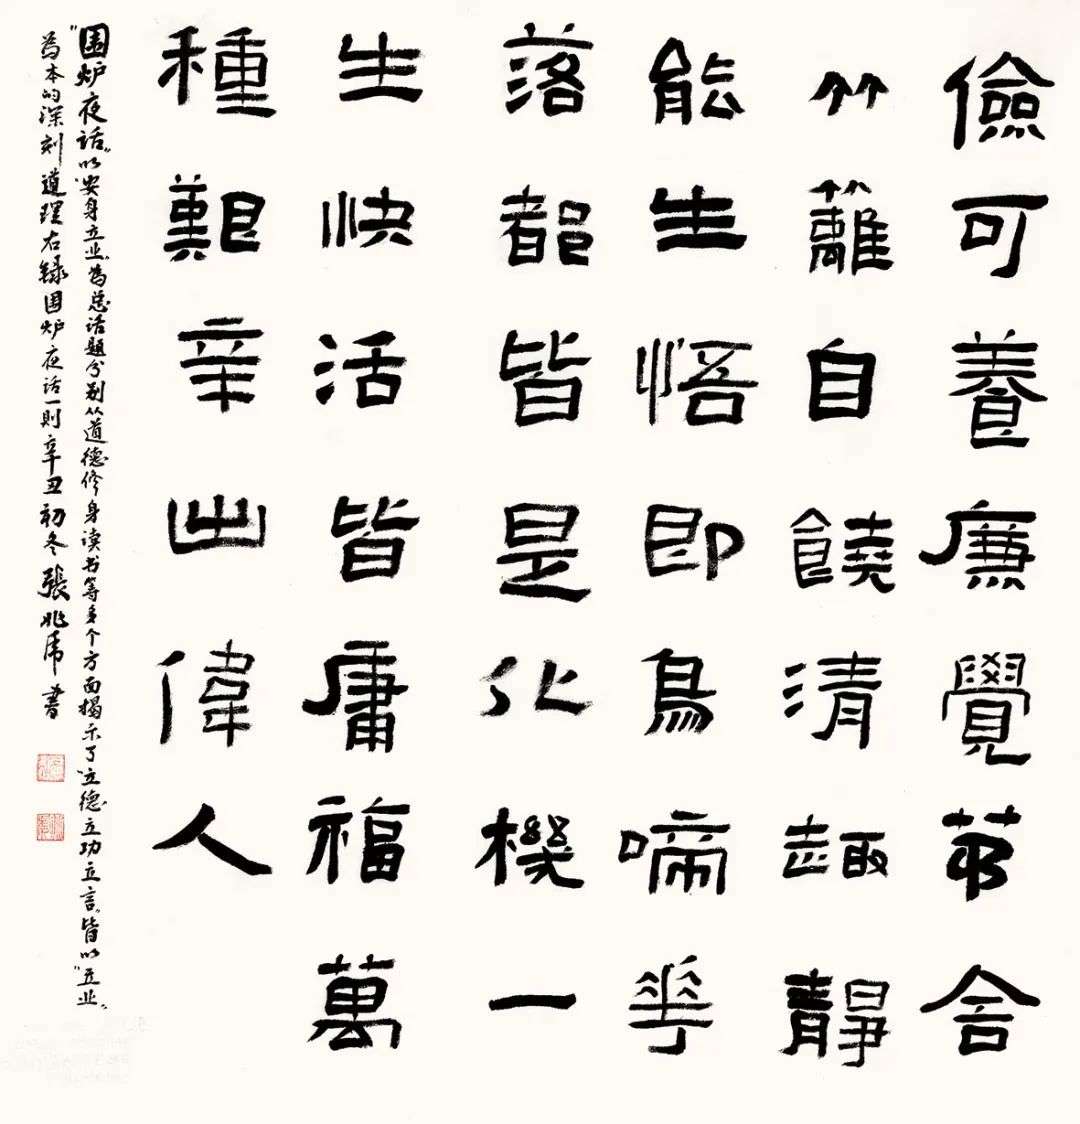 儉可養廉覺茅舍
竹籬自饒清趣靜
能生悟即鳥啼花
落都皆是化機一
生快活皆庸福萬
種艱辛出偉人
"围炉夜话"以"安身立业"为总话题分别从道德修身读书等多个方面揭示了"立德立功立言"皆以"立业"
为本的深刻道理右録围炉夜话一則辛丑初冬張兆虎書